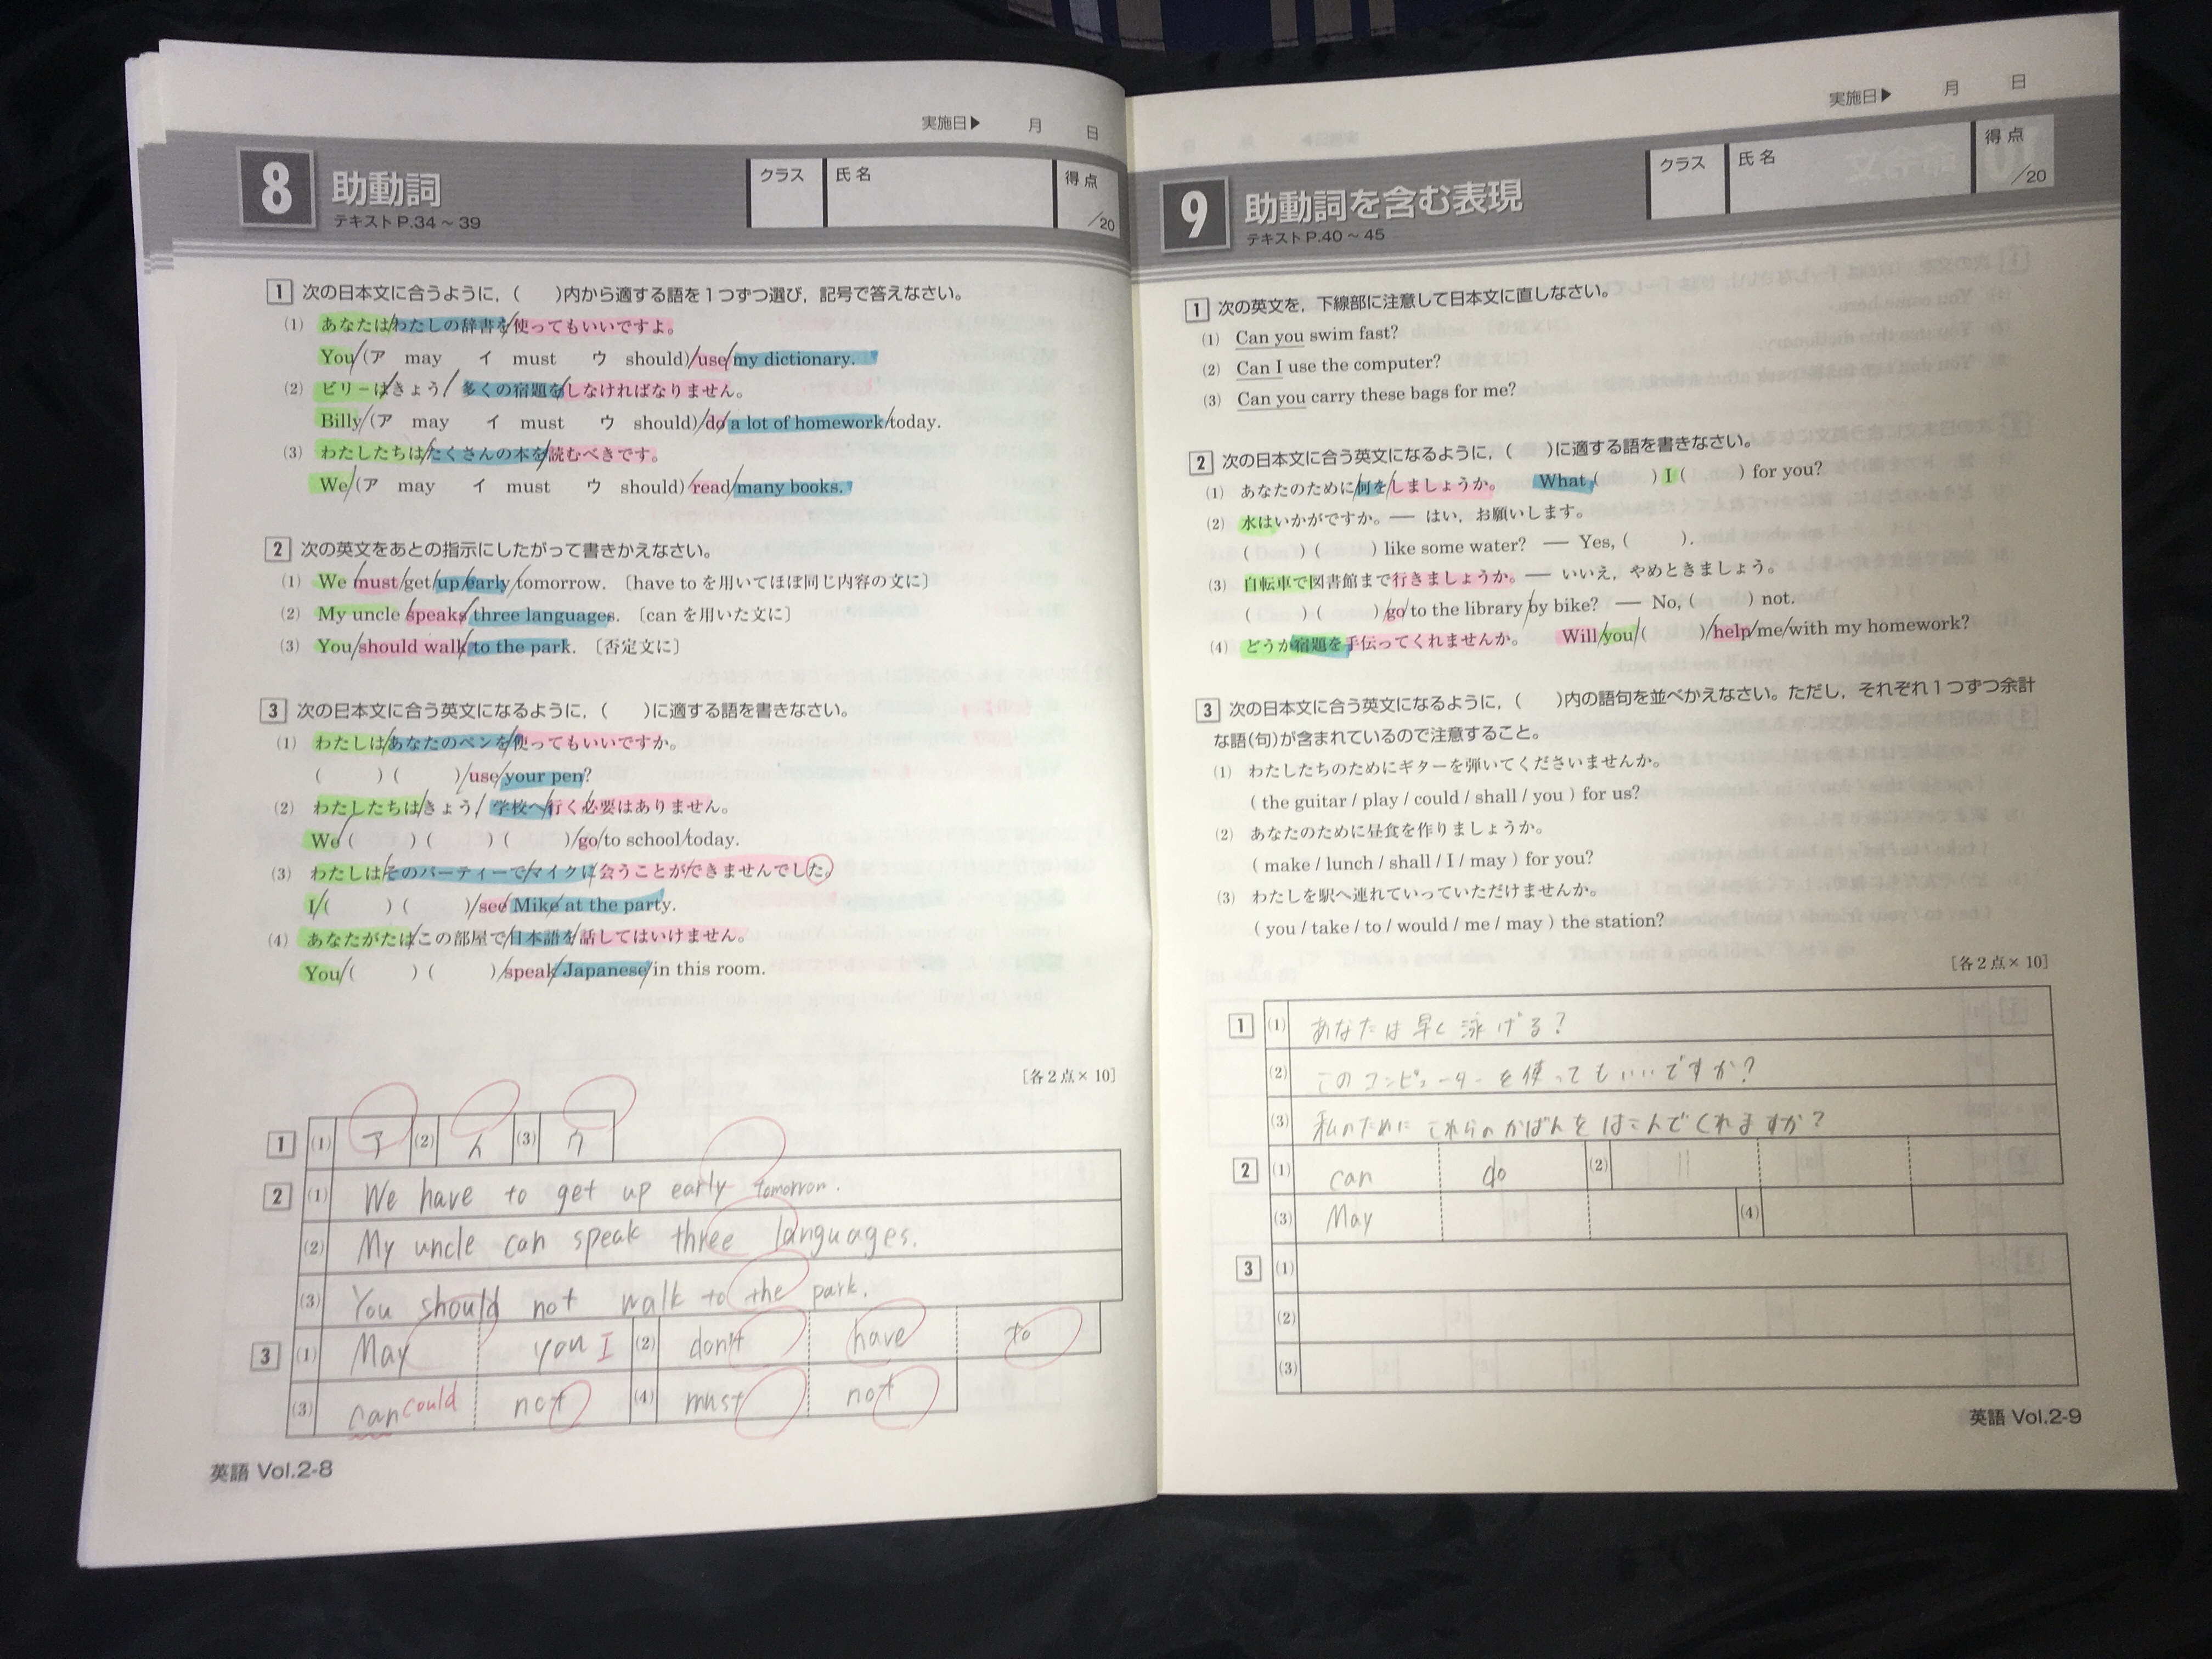 実施日▶ 月 日
8 助動詞
テキストP.34～39
クラス 氏名 得点 /20
1 次の日本文に合うように，( )内から適する語を1つずつ選び，記号で答えなさい。
(1) あなたはわたしの辞書を使ってもいいですよ。
You (ア may イ must ウ should) use my dictionary.
(2) ビリーはきょう，多くの宿題をしなければなりません。
Billy (ア may イ must ウ should) do a lot of homework today.
(3) わたしたちはたくさんの本を読むべきです。
We (ア may イ must ウ should) read many books.
2 次の英文をあとの指示にしたがって書きかえなさい。
(1) We must get up early tomorrow. 〔have to を用いてほぼ同じ内容の文に〕
(2) My uncle speaks three languages. 〔can を用いた文に〕
(3) You should walk to the park. 〔否定文に〕
3 次の日本文に合う英文になるように，( )に適する語を書きなさい。
(1) わたしはあなたのペンを使ってもいいですか。
( ) ( ) use your pen?
(2) わたしたちはきょう，学校へ行く必要はありません。
We ( ) ( ) ( ) go to school today.
(3) わたしはそのパーティーでマイクに会うことができませんでした。
I ( ) ( ) see Mike at the party.
(4) あなたがたはこの部屋で日本語を話してはいけません。
You ( ) ( ) speak Japanese in this room.
[各2点×10]
1 (1) ア (2) イ (3) ウ
2 (1) We have to get up early tomorrow.
(2) My uncle can speak three languages.
(3) You should not walk to the park.
3 (1) May you I (2) don't have to
(3) can could not (4) must not
英語 Vol.2-8
実施日▶ 月 日
9 助動詞を含む表現
テキストP.40～45
クラス 氏名 得点 /20
1 次の英文を，下線部に注意して日本文に直しなさい。
(1) Can you swim fast?
(2) Can I use the computer?
(3) Can you carry these bags for me?
2 次の日本文に合う英文になるように，( )に適する語を書きなさい。
(1) あなたのために何をしましょうか。 What ( ) I ( ) for you?
(2) 水はいかがですか。— はい，お願いします。
( ) ( ) like some water? — Yes, ( ).
(3) 自転車で図書館まで行きましょうか。— いいえ，やめときましょう。
( ) ( ) go to the library by bike? — No, ( ) not.
(4) どうか宿題を手伝ってくれませんか。 Will you ( ) help me with my homework?
3 次の日本文に合う英文になるように，( )内の語句を並べかえなさい。ただし，それぞれ1つずつ余計
な語(句)が含まれているので注意すること。
(1) わたしたちのためにギターを弾いてくださいませんか。
( the guitar / play / could / shall / you ) for us?
(2) あなたのために昼食を作りましょうか。
( make / lunch / shall / I / may ) for you?
(3) わたしを駅へ連れていっていただけませんか。
( you / take / to / would / me / may ) the station?
[各2点×10]
1 (1) あなたは早く泳げる?
(2) このコンピューターを使ってもいいですか?
(3) 私のためにこれらのかばんをはこんでくれますか?
2 (1) can do (2)
(3) May (4)
3 (1)
(2)
(3)
英語 Vol.2-9